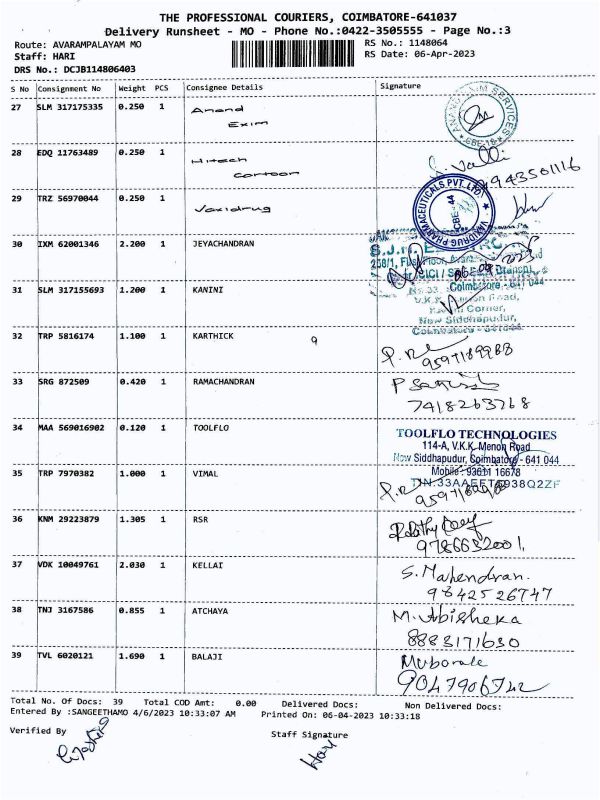 THE PROFESSIONAL COURIERS, COIMBATORE-641037
Delivery Runsheet - MO - Phone No.:0422-3505555 - Page No.:3
Route: AVARAMPALAYAM MO RS No.: 1148064
Staff: HARI RS Date: 06-Apr-2023
DRS No.: DCJB114806403
S No Consignment No Weight PCS Consignee Details Signature
27 SLM 317175335 0.250 1 Anand
Exim
28 EDQ 11763489 0.250 1 Hitech
Cartoon
S. Valli
29 TRZ 56970044 0.250 1 Vaxidrug
VAXIDRUG PHARMACEUTICALS PVT. LTD.
CBE-44
30 IXM 62001346 2.200 1 JEYACHANDRAN
Coimbatore - 641 044
31 SLM 317155693 1.200 1 KANINI
Corner,
New Siddhapudur,
32 TRP 5816174 1.100 1 KARTHICK 9
33 SRG 872509 0.420 1 RAMACHANDRAN
7418263768
34 MAA 569016902 0.120 1 TOOLFLO
TOOLFLO TECHNOLOGIES
114-A, V.K.K. Menon Road
New Siddhapudur, Coimbatore - 641 044
Mobile: 93611 16678
35 TRP 7970382 1.000 1 VIMAL
36 KNM 29223879 1.305 1 RSR
9786632001
37 VDK 10049761 2.030 1 KELLAI
S. Mahendran.
9842526747
38 TNJ 3167586 0.855 1 ATCHAYA
M. Abisheka
8883171630
39 TVL 6020121 1.690 1 BALAJI
9047906742
Total No. Of Docs: 39 Total COD Amt: 0.00 Delivered Docs: Non Delivered Docs:
Entered By :SANGEETHAMO 4/6/2023 10:33:07 AM Printed On: 06-04-2023 10:33:18
Verified By Staff Signature
Hari